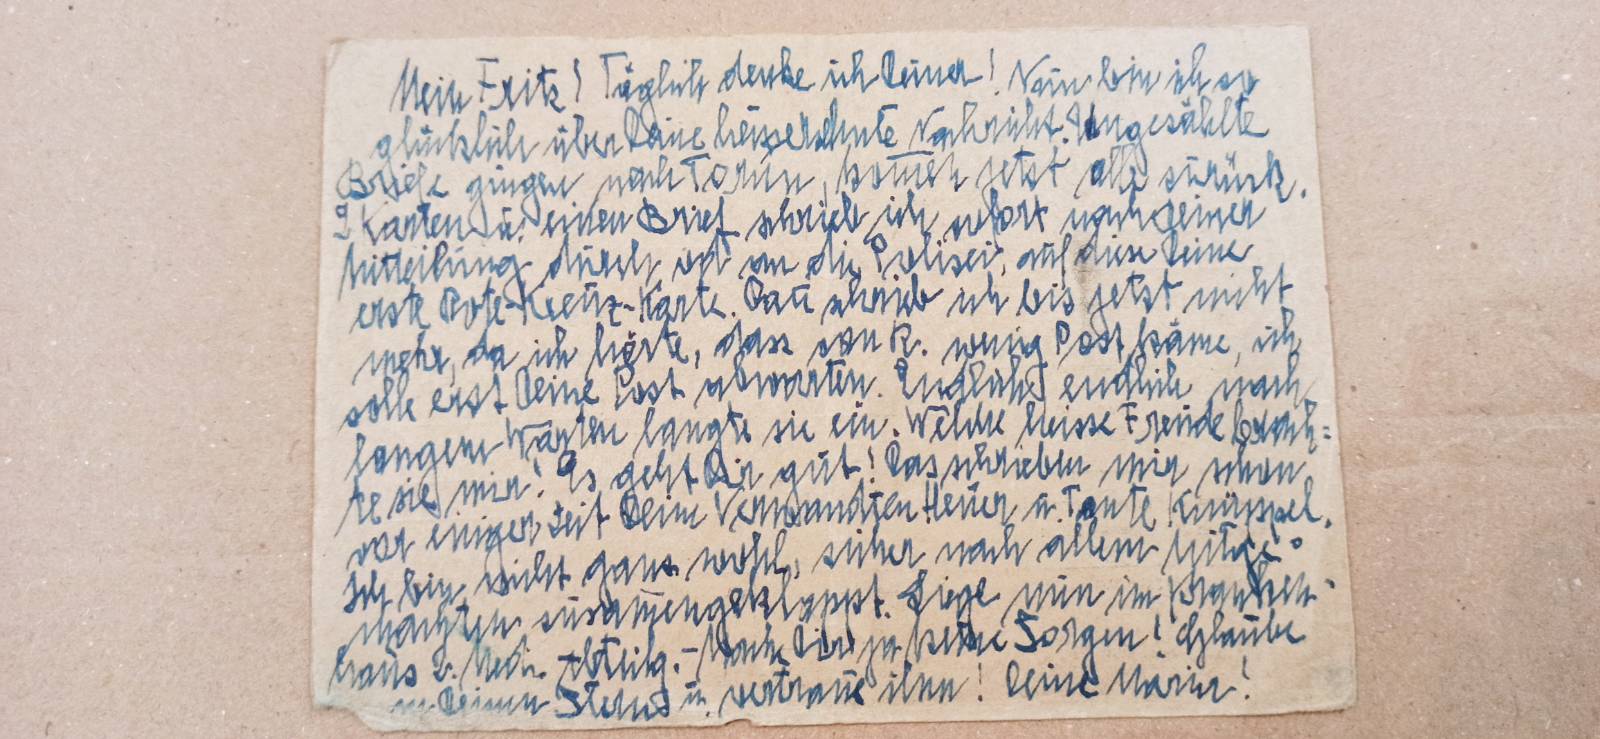 Mein Fritz! Täglich denke ich Deiner! Nein bin ich so
glücklich über Deine heissersehnte Nachricht. Ungezählte
Briefe gingen nach Torun, kom̅en jetzt alle zurück.
2 Karten u. einen Brief schrieb ich sofort nach Deiner
Mitteilung durch an die Polizei, auf diese Deine
erste Rote-Kreuz-Karte. Dan̅ schrieb ich bis jetzt nicht
mehr, da ich hörte, dass von R. wenig Post käme, ich
solle erst Deine Post abwarten. Endlich, endlich nach
langem Warten langte sie ein. Welche heisse Freude brach=
te sie mir! Es geht Dir gut! Das schrieben mir schon
vor einiger Zeit Deine Verwandten Heuer u. Tante Knüppel.
Ich bin nicht ganz wohl, sicher nach allem Mitge=
machten zusam̅engeklappt. Liege nun im Kranken-
haus 2. Med. Abteilg. – Mach Dir ja keine Sorgen! Glaube
an Deinen Stern u. vertraue ihm! Deine Maria!